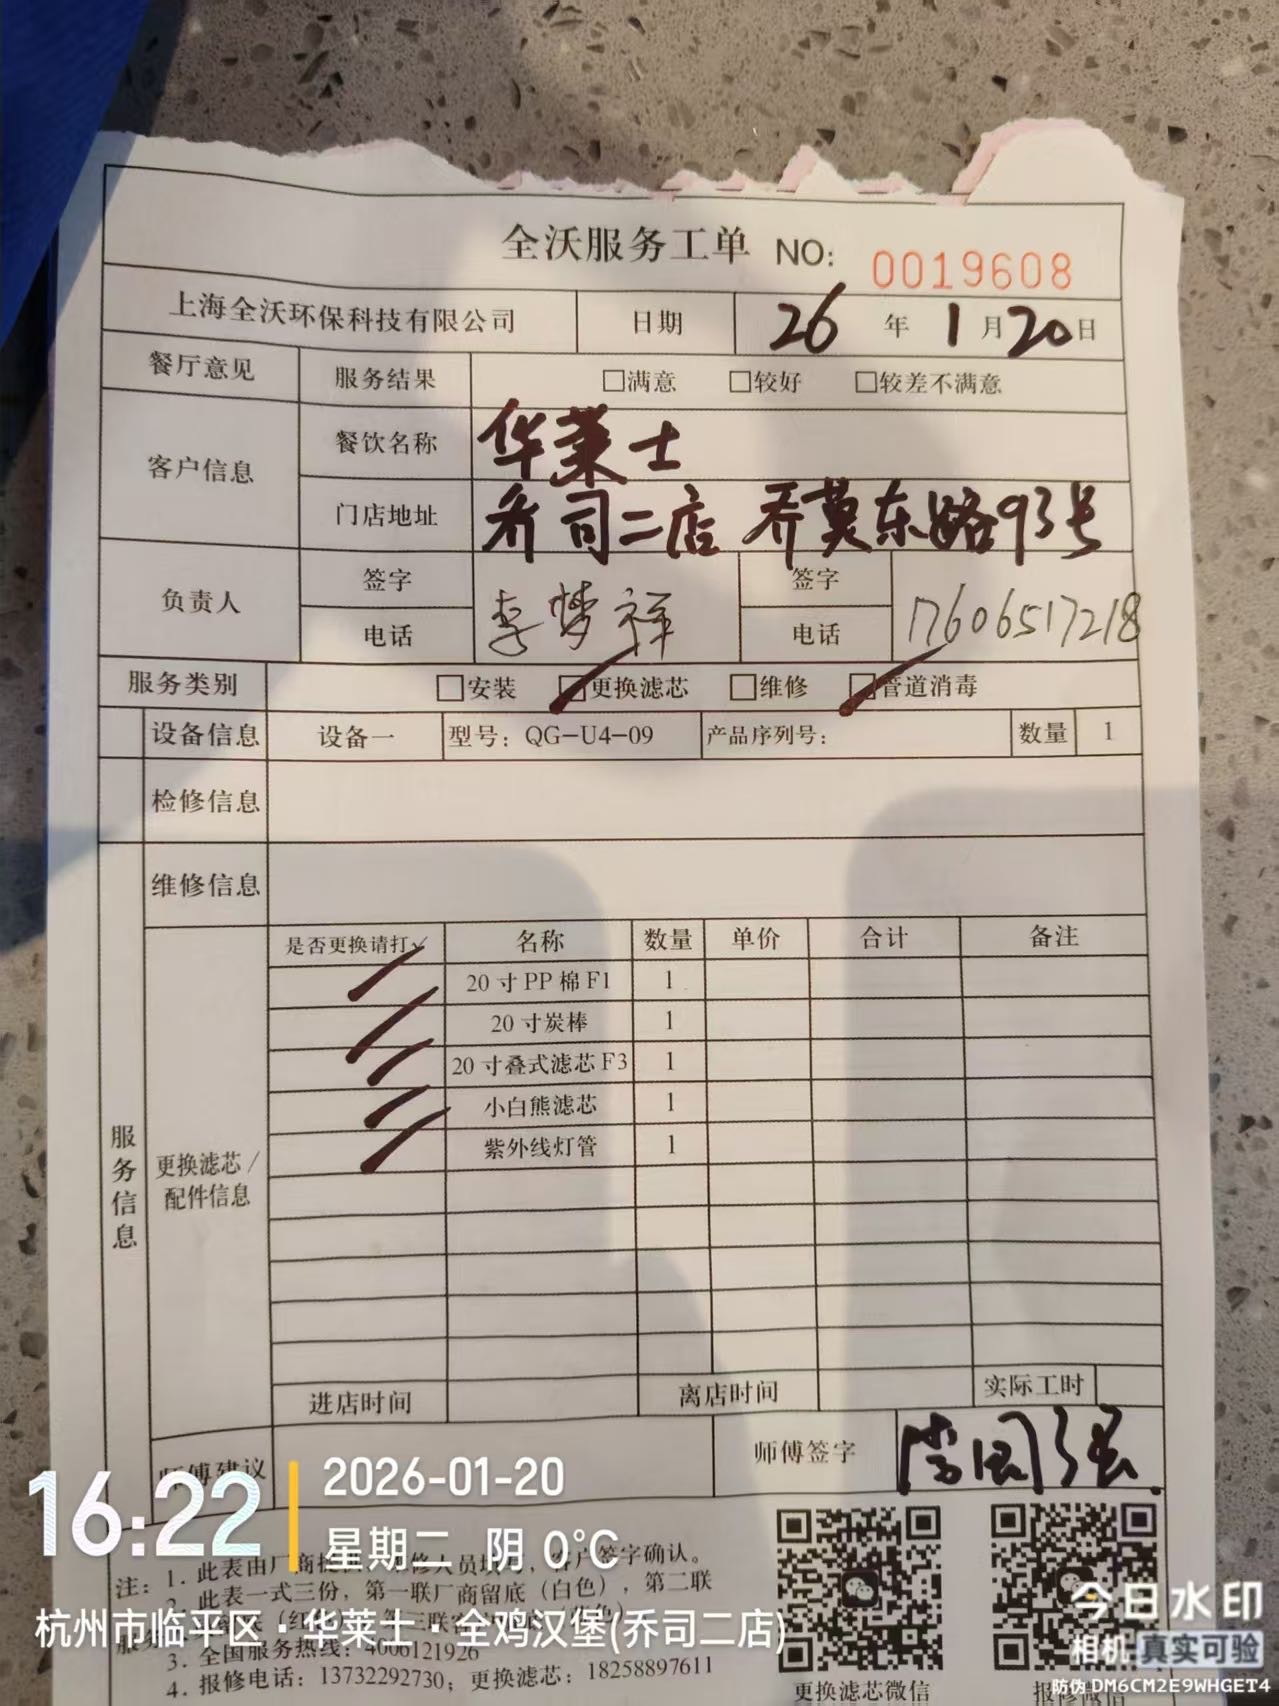 全沃服务工单 NO: 0019608
上海全沃环保科技有限公司 日期 26 年 1 月 20 日
餐厅意见 服务结果 □满意 □较好 □较差不满意
客户信息 餐饮名称 华莱士
门店地址 乔司二店 乔莫东路93号
负责人 签字 电话 李梦祥 签字 电话 17606517218
服务类别 □安装 ☑更换滤芯 □维修 ☑管道消毒
设备信息 设备一 型号：QG-U4-09 产品序列号： 数量 1
检修信息
维修信息
服务信息
更换滤芯/配件信息
是否更换请打✓ 名称 数量 单价 合计 备注
✓ 20寸PP棉F1 1
✓ 20寸炭棒 1
✓ 20寸叠式滤芯F3 1
✓ 小白熊滤芯 1
✓ 紫外线灯管 1
进店时间 离店时间 实际工时
师傅建议 师傅签字 李国强
16:22 2026-01-20
星期二 阴 0℃
杭州市临平区·华莱士·全鸡汉堡(乔司二店)
注：1. 此表由厂商 修人员 客户签字确认。
2. 此表一式三份，第一联厂商留底（白色），第二联
3. 全国服务热线：4006121926
4. 报修电话：13732292730；更换滤芯：18258897611
更换滤芯微信 报修微信
今日水印
相机 真实可验
防伪 DM6CM2E9WHGET4